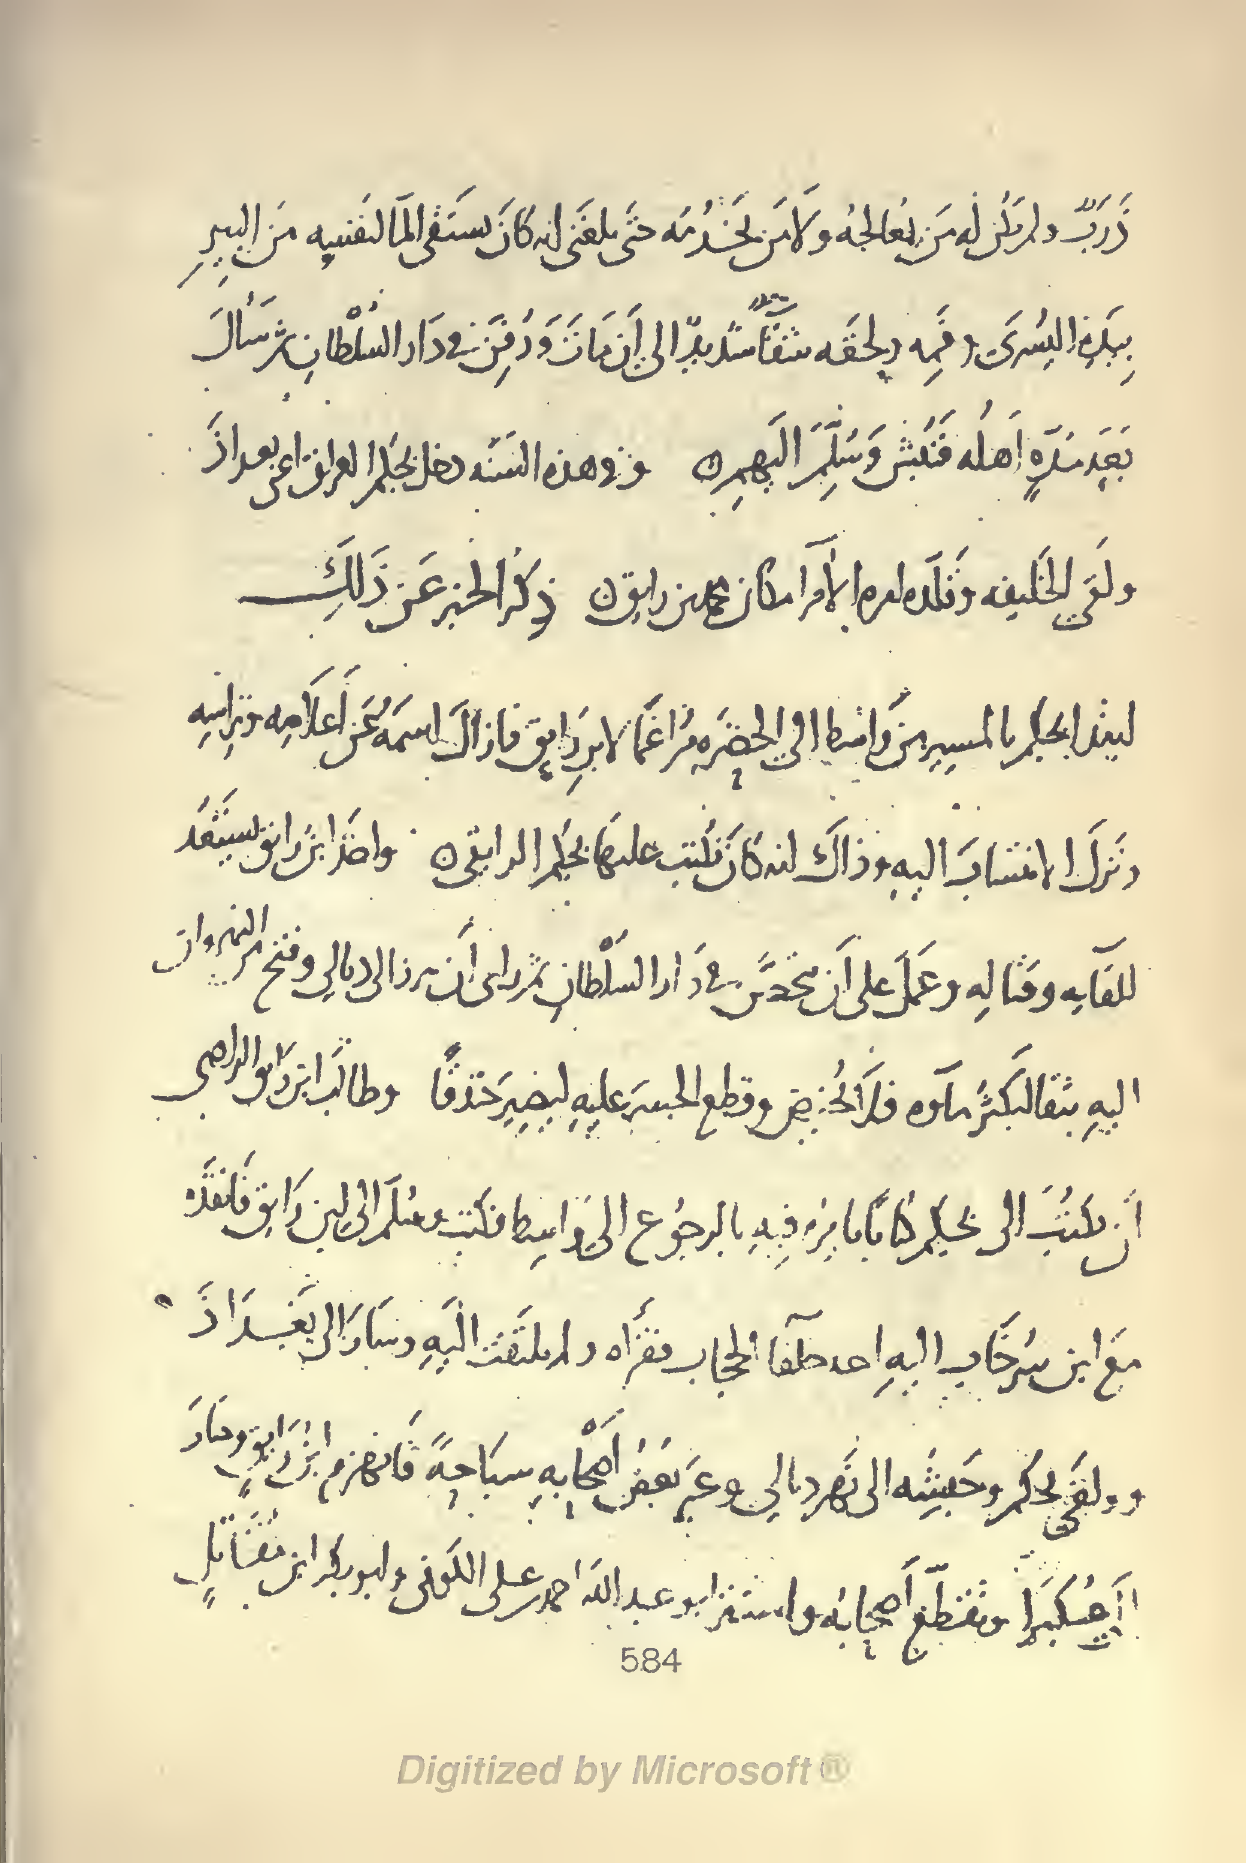 ذَرَبٌ ولم يكن له مَن يُعالجُه ولا مَن يَخدُمُه حتَى بلغَنى انه كانَ يستَقى المآ لنفسِه مِنَ البيرِ
بيَدِه اليُسرَى وفَمِه ولحقَه شقآ شديدٌ الى أن مَاتَ وَدُفِنَ فى دَار السُلطانِ ثم سَالَ
بَعدَ مُدّةٍ أهلُه فنُبشَ وَسُلِّمَ اليهم ن وفى هذه السَنَه دخل بجكم العراق اعنى بغداذَ
ولقىَ الخليفه وقلّده امره الأمرا مكان محمد بن رايق ن ذِكرُ الخبر عَن ذَلِكَ
ابتدا بجكم بالمسيرِ من وَاسِط الى الحضرَه مُراغمًا لابن رَايق فازالَ اسمَهُ عَن أعلامِه وتِراسِه
وتركَ الانتسابَ اليهِ وذاكَ انه كانَ يكتب عليهَا بجكم الرايقى ن واخذ ابنُ رايق يستَعدُ
للقآيه وقتالِه وعَمِلَ على أن يتحصّنَ فى دَار السُلْطانِ ثم راى أن يبرز الى ديالى وفتح من النهروان
اليهِ بثقا ليكثرَ مآوه فلا يُخَض وقطع الجسرَ عليهِ ليصيرَ خندقًا وطالَبَ ابن رَايق الراضى
أن يكتُبَ الى بجكم كتابًا يامُره فِيهِ بالرجوُع الى وَاسِط فكتب وسُلّمَ الى ابن رَايق فانفَذَه
مَعَ ابن سرخاب اليهِ احد خلفا الحجاب فقرَأه ولم يلتَفِت اليهِ وسَارَ الى بَغدَاذَ
ووافى بجكم وجَيشُه الى نَهر ديالى وعبَر بَعضُ أصحابِه سِبَاحةً فانهزم ابنُ رَايق وصَارَ
الى عُكبَرا وتقطّع أصحابُه واستتر ابو عبد الله احمد بن على الكوفى وابو بكر ابن مُقَاتلٍ
584
Digitized by Microsoft®